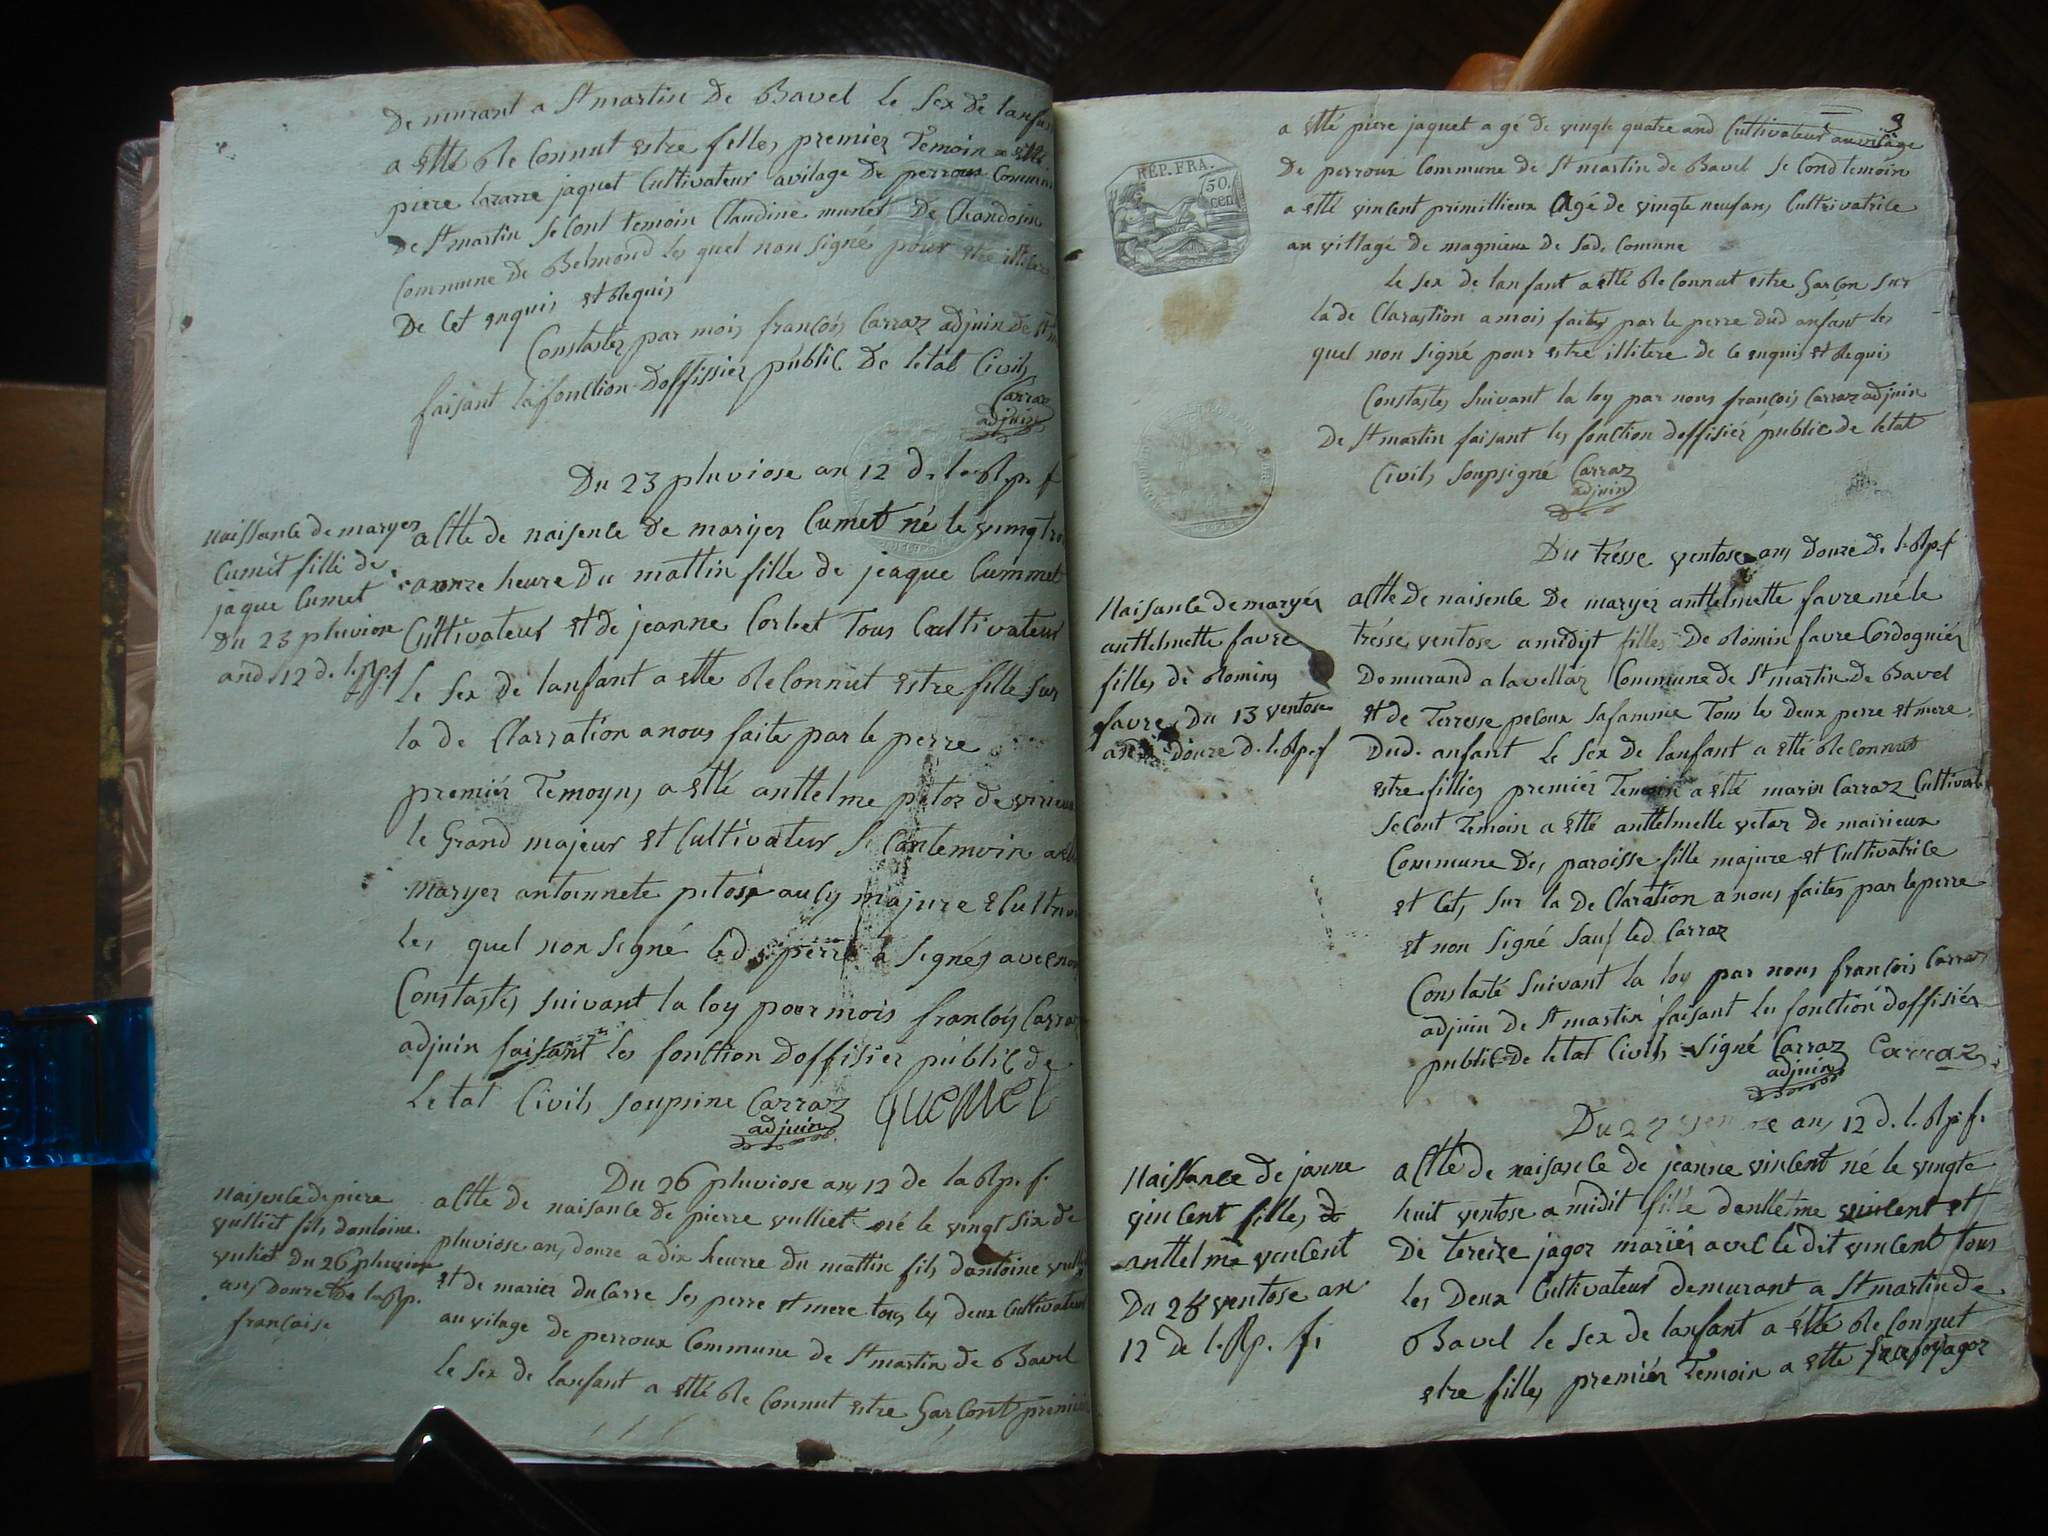 Demurant a St martin De Bavel Le Sex de lanfan
a etté Reconnut estre filles premier Temoin a etté
piere lazarre jaquet Cultivateur avilage De perroux Commune
De St martin Secont temoin Claudine munet De Chandosin
Commune de Belmond les quel non signé pour etre illitere
De Cet enquis et Requis
Constastez par mois françois Carraz adjuin de St
faisant la fonction Doffissiez public De letat Civils
Carraz
adjuin
Du 23 pluviose an 12 d. l. Rp. f
Naissance de maryez
Cumet fille de
jaque Cumet
Du 23 pluviose
and 12 d. l. Rp. f
actte de naisence de maryez Cumet né le vingtro
a onze heure Du mattin fille de jeaque Cummet
Cultivateur et de jeanne Corbet Tous Cultivateur
Le Sex de lanfant a ette Reconnut estre fille sur
la de Clarration a nous faite par le perre
premiér Temoyns a etté anttelme pitoz de virieux
le Grand majeur et Cultivateur Se Contemoin a ett
maryez antoinnete pitose aucy majure
les quel non signé led. perre a signéz avec nous
Constastés suivant la loy pour mois françoiy Carraz
adjuin faisant les fonction Doffisiez public de
Letat Civils soupsine Carraz
adjuin
Quemet
Du 26 pluviose an 12 de la Rp. f.
Naisence de piere
vulliet fils dantoine
vuliet Du 26 pluviose
ans Douze de la Rp.
française
actte de naisance de pierre vulliet né le vingt six de
pluviose ans douze a dix heurre du mattin fils dantoine vulliet
et de mariez ducarre Ses perre et mere tous les deux Cultivateur
au vilage de perroux Commune de St martin de Bavel
le Sex de lanfant a etté Reconnut estre Garçont premier
9
a etté piere jaquet agé de vingte quatre and Cultivateur au vilage
De perroux Commune de St martin de Bavel Se Cond temoin
a etté vincent primittieux Agé de vingte neuf ans Cultrivatrice
au village de magnieux de Sad. Comune
REP. FRA.
50
cen
Le Sex de lanfant a etté Reconnut estre Garçon Sur
la de Clarastion a mois faites par le perre dud anfant les
quel non signé pour estre illitere de Ce enquis et Requis
Constastes Suivant la loy par nous françois Carraz adjuin
de St martin faisant les fonction doffisiér public de letat
Civils soupsigné Carraz
adjuin
Du trésse ventose ans douze de l. Rp. f
Naisance de maryéz
anttelmette favre
filles dé Romins
favre Du 13 ventose
ans Douze d. l. Rp. f
actte De naisence De maryéz anttelmette favre né le
trésse ventose a midyt filles De Romin favre Cordogniéz
Demurand a lavellaz Commune de St martin De Bavel
et de Terresse peloux Safamme Tous les deux perre et mere
Dud. anfant Le Sex de lanfant a etté Reconnut
estre filliés premiér Temoin a etté marin Carraz Cultivat
Secont Temoin a etté anttelmette petoz de mairieux
Commune Des paroisse fille majure et Cultivatrice
et Cet, Sur la De Claration a nous faites par le perre
et non Signé Sauf led Carraz
Constasté Suivant la loy par nous françois Carraz
adjuin de St martin faisant les fonction doffisiéz
public De letat Civils Signé Carraz Carraz
adjuin
Du 28 ventose ans 12 d. l. Rp. f.
Naissance de janne
vincent filles de
anttelme vencent
Du 28 ventose an
12 De l. Rp. f.
actte de naisance de jeanne vincent né le vingte
huit ventose a midit fille danttelme vincent et
De tereize jagoz mariéz avec le dit vincent tous
les Deux Cultivateur demurant a St martin de
Bavel le Sex de lanfant a étté Reconnut
etre filles premiér Temoin a ette jagoz